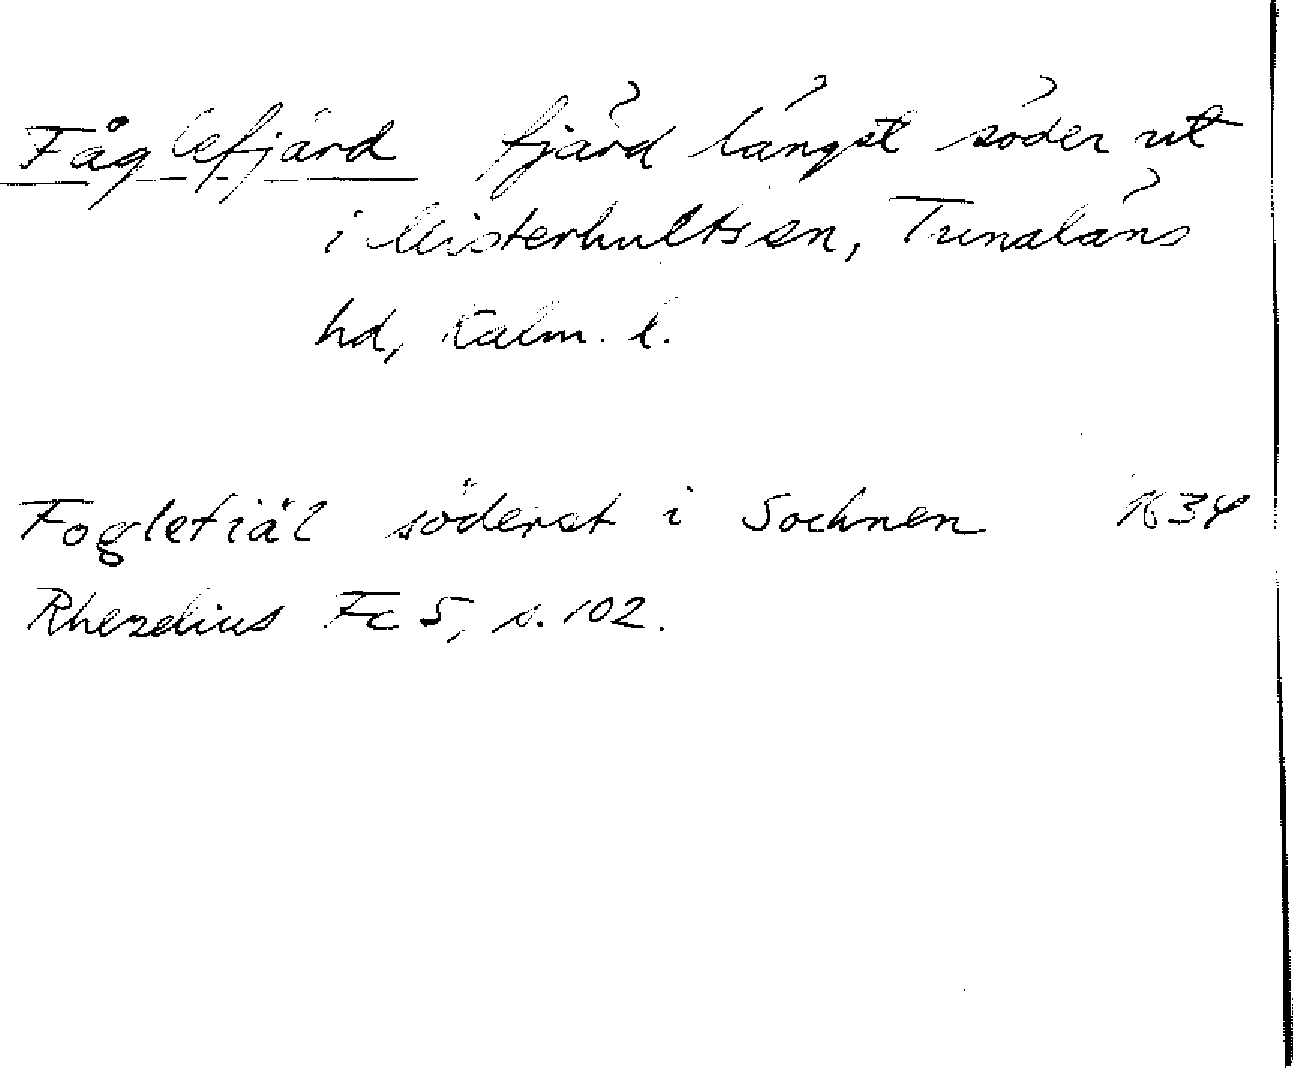 Fåglefjärd fjärd längst söder ut
i Misterhults sn, Tunaläns
hd, Kalm. l.
Fogletiäl söderst i Sochnen 1634
Rhezelius Fc 5, s. 102.